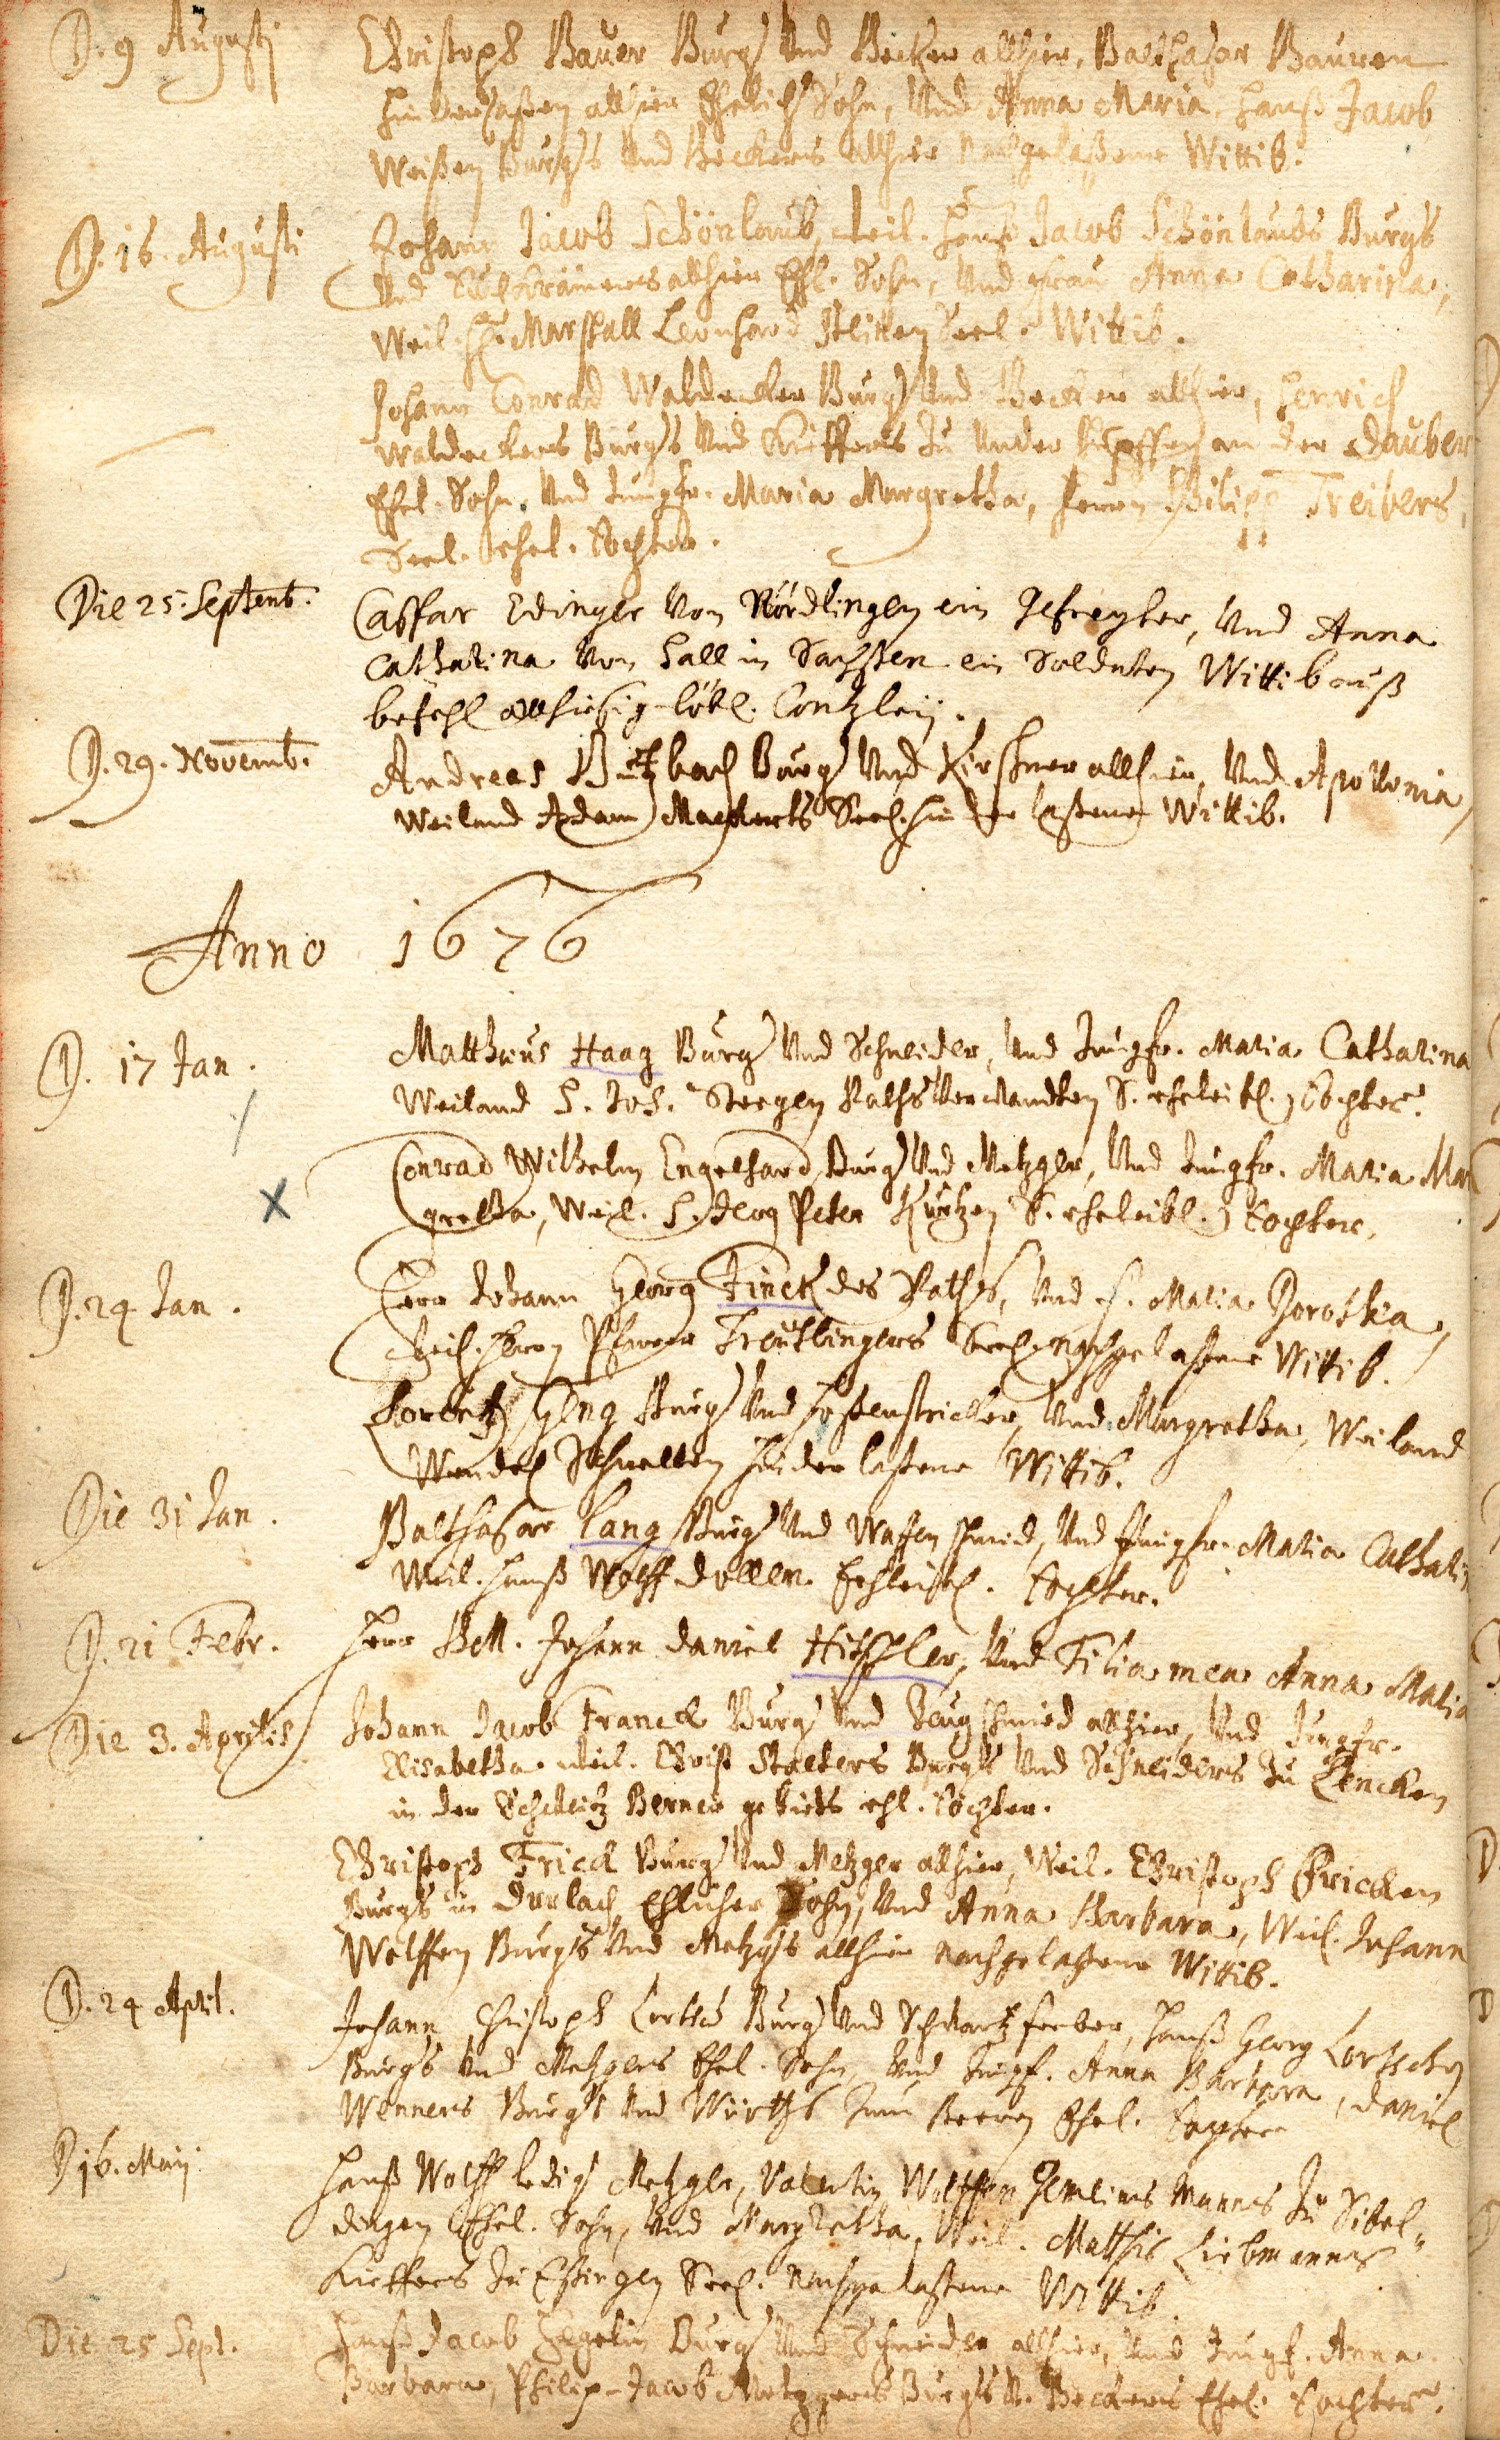 D. 9 Augusti
Christoph Bauer Burg. Und Becker allhier, Balthasar Bauren
Hindersaßen allhier Ehelich Sohn, Und Anna Maria, Hanß Jacob
Weißen Burgs Und Beckers allhier nachgelaßene Wittib.
D. 16. Augusti
Johann Jacob Schönlaub, Weil. Hanß Jacob Schönlaubs Burgs
Und allhier Ehl. Sohn, Und Frau Anna Catharina,
Weil. H. Marshall Leonhard Seel. Wittib.
Johann Conrad Waldecker Burg. Und Becker allhier, Henrich
Waldeckers Burgs Und Kieffers zu Under an der Dauber
Ehel. Sohn, Und Jungfr. Maria Margretha, Herrn Philipp Treibers,
Seel. ehel. Tochter.
Die 25. Septemb.
Caspar Edinger Von Nördlingen ein Gefreyter, Und Anna
Catharina Von Hall in Sachßen ein Soldaten Wittib auß
befehl allhiesig löbl. Cantzleij.
D. 29. Novemb.
Andreas Butzbach Burg. Und Kirschner allhier, Und Apollonia,
Weiland Adam Mackerts Seel. hinderlaßene Wittib.
Anno 1676
D. 17 Jan.
Matthæus Haag Burg. Und Schneider, Und Jungfr. Maria Catharina
Weiland H. Joh. Steegen Raths Verwandten S. eheleibl. Tochter.
Conrad Wilhelm Engelhard, Burg. Und Metzger, Und Jungfr. Maria Mar
gretha, Weil. H. Georg Peter Kurtzen S. eheleibl. Tochter.
D. 24 Jan.
Herr Johann Georg Finck des Raths, Und F. Maria Dorothea,
Weil. Herrn Pfarrer Treutlingers Seel. nachgelaßene Wittib.
Lorentz Geng Burg. Und Hoßenstricker, Und Margretha, Weiland
Wendel Schnellen hinderlaßene Wittib.
Die 31 Jan.
Balthasar Lang Burg. Und Waffenschmid, Und Jungfr. Maria Cathari
Weil. Hanß Wolff Dollen Ehleibl. Tochter.
D. 21 Febr.
Herr Johann Daniel Hitschler, Und Filia mea Anna Maria
Die 3. Aprilis
Johann Jacob Franck Burg. Und Zeugschmied allhier, Und Jungfr.
Elisabetha Weil. Christ Stalters Burgs Und Schneiders zu Lencken
in der Schweitz Berner gebiets ehl. Tochter.
Christoph Frick Burg. Und Metzger allhier, Weil. Christoph Fricken
Burgs in Durlach, Ehlicher Sohn, Und Anna Barbara, Weil. Johann
Wolffen Burgs Und Metzgs allhier nachgelaßene Wittib.
D. 24 April.
Johann Christoph Lortsch Burg. Und Schwartzferber, Hanß Georg Lortschen
Burgs Und Metzgers Ehel. Sohn, Und Jungf. Anna Barbara, Daniel
Wenners Burgs Und Würths zum Ehel. Tochter
D. 16. Maij
Hanß Wolff ledig Metzger, Valentin Wolffen Gemeinsmannes zu Sibel-
dingen Ehel. Sohn, Und Margretha, Weil. Matthis Liebmannes
Kieffers zu Eßingen Seel. nachgelaßene Wittib.
Die 25 Sept.
Hanß Jacob Burg. Und Schneider allhier, Und Jungf. Anna
Barbara, Philip-Jacob Metzgers Burgs U. Beckers Ehel. Tochter.